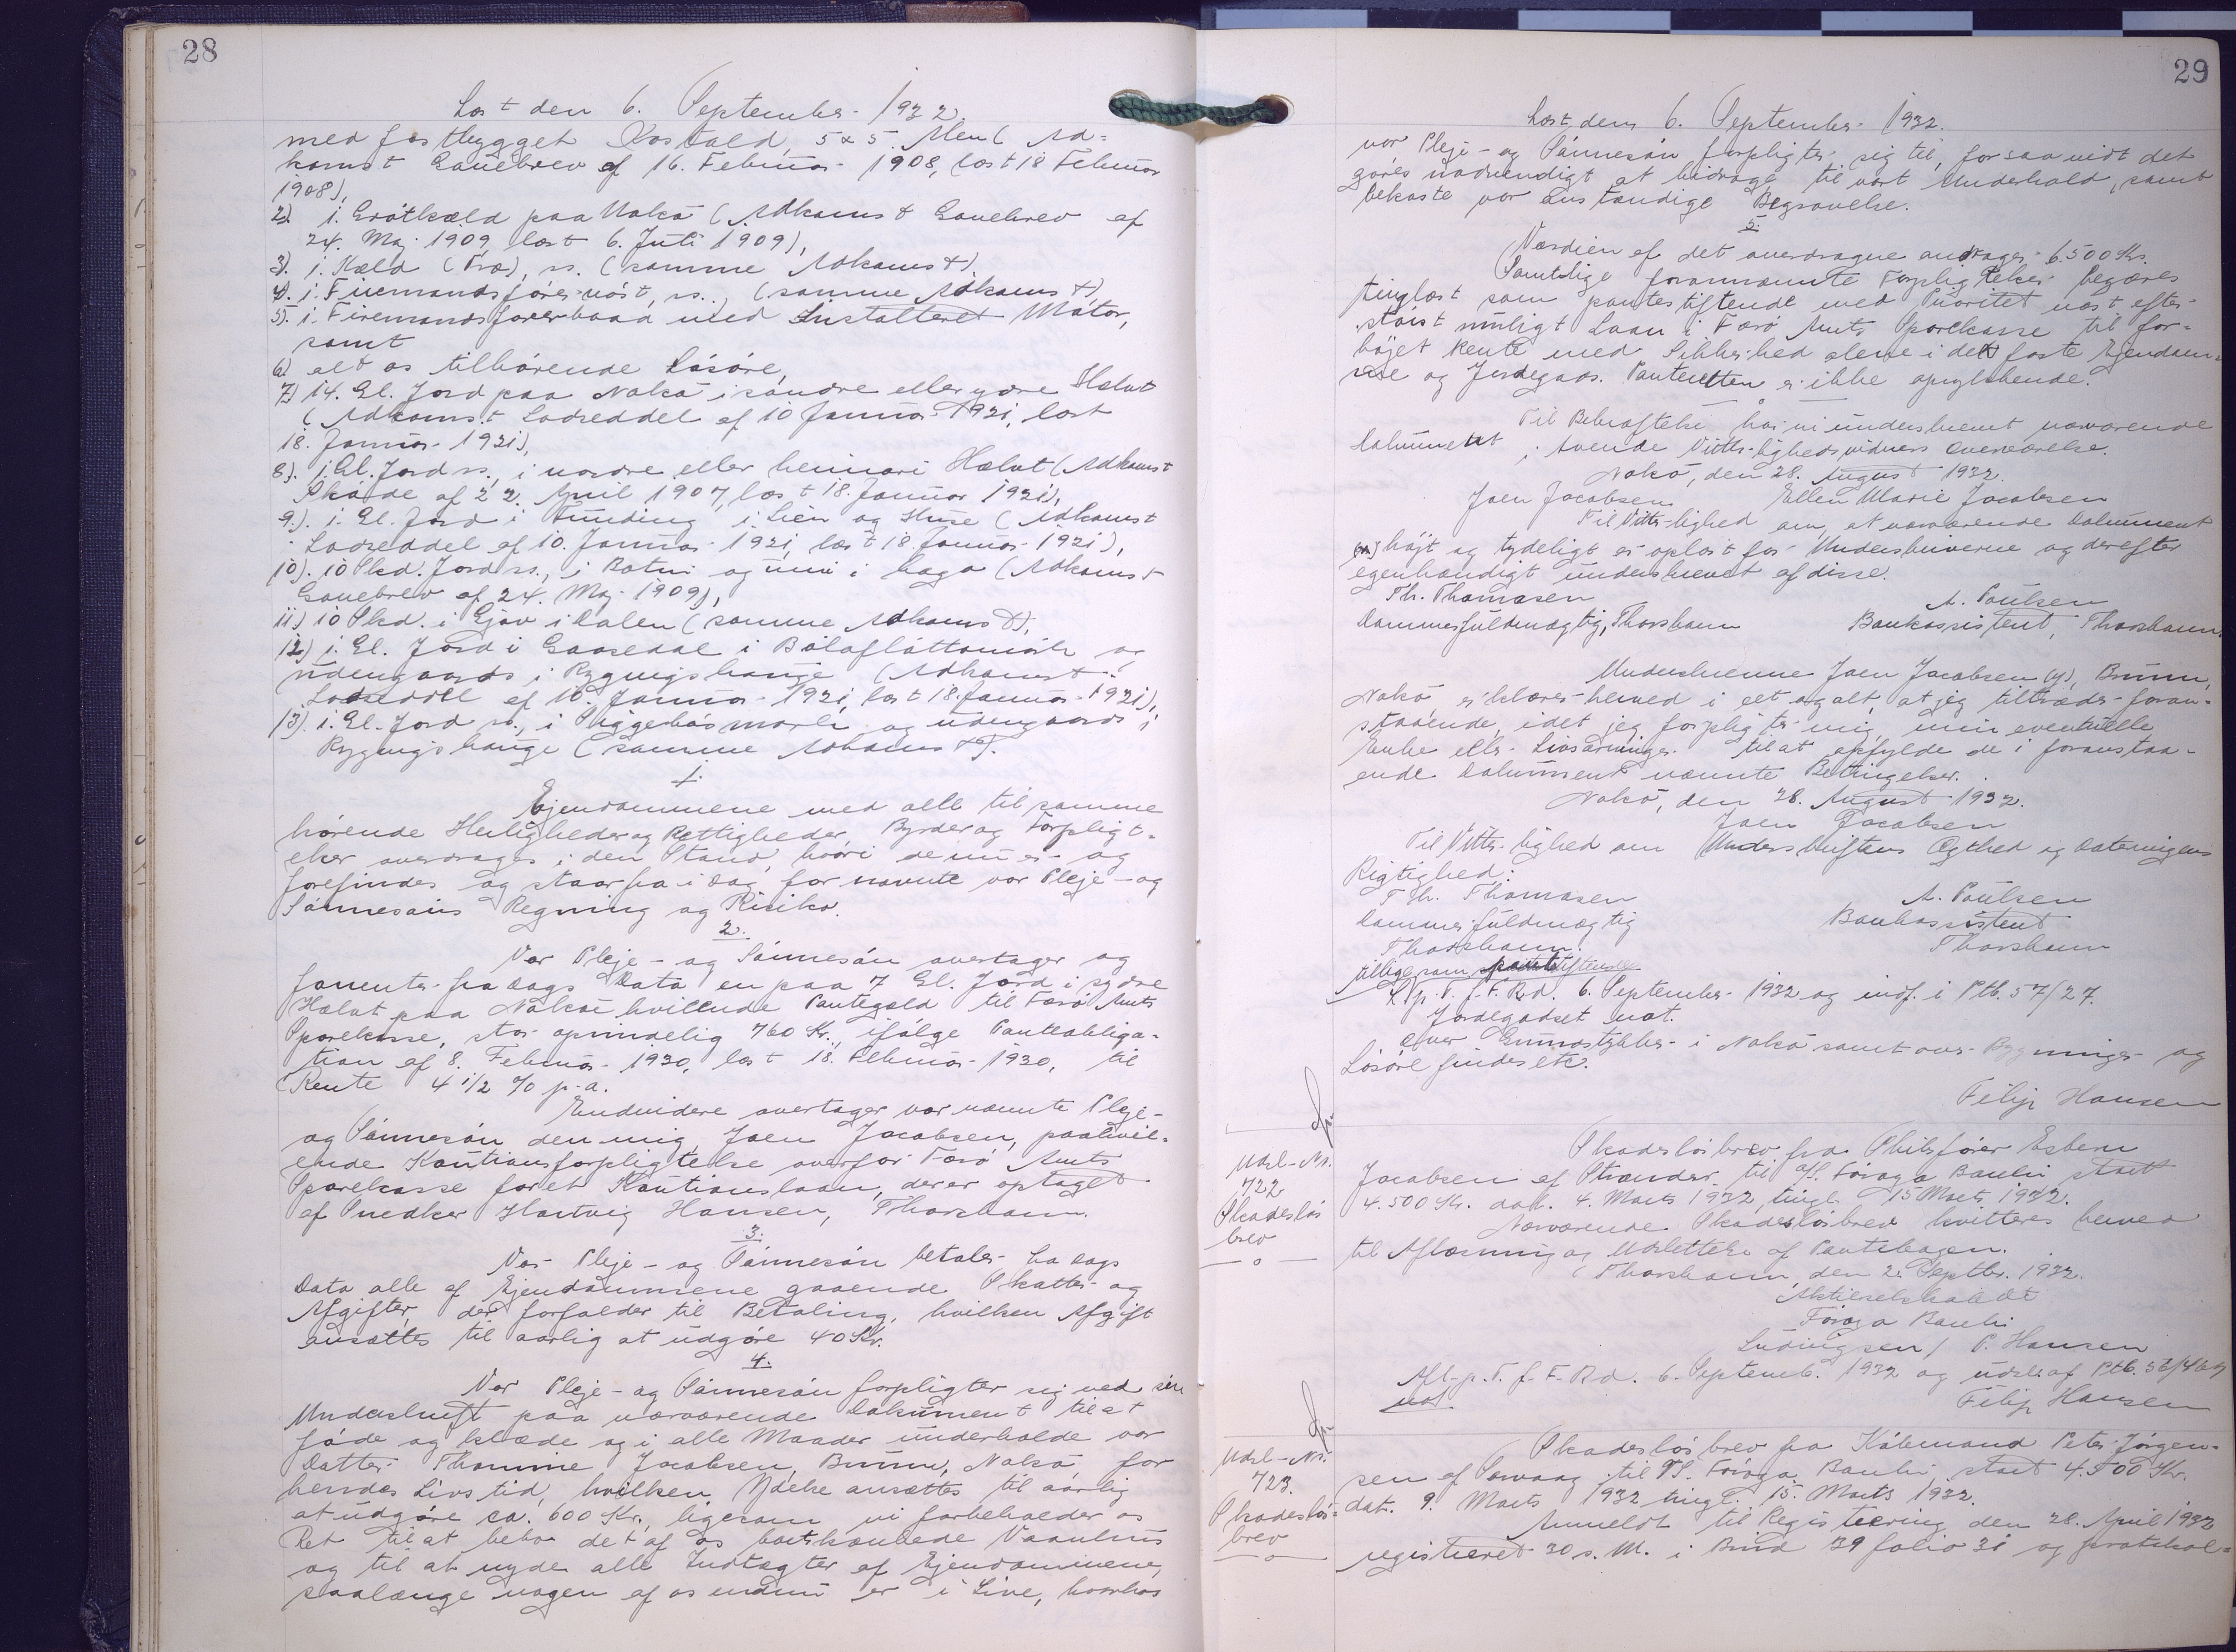 28
Læst den 6. September 1932.
med fastbygget Kostald, 5 x 5 Alen (Ad-
komst Gavebrev af 16. Februar 1908, læst 18 Februar
1908),
2). i Grótkæld paa Nolsö (Adkomst Gavebrev af
24. Maj 1909, læst 6. Juli 1909),
3). 1 Kæld (Træ), ss. (samme Adkomst),
4). 1 Firemandsfarer nóst, ss., (samme Adkomst),
5). 1 Firemandsfarerbaad med Installeret Mótor,
samt
6) alt os tilhörende Lösöre,
7) 14. Gl. Jord paa Nolsö i söndre eller ydre Halvt
(Adkomst Lodseddel af 10 Januar 1921, læst
18. Januar 1921),
8). 1 Gl. Jord ss., i nordre eller heimari Halvt (Adkomst
Sköde af 22. April 1907, læst 18. Januar 1921),
9.). 1 Gl. Jord i Funding i Lien og Huse (Adkomst
Lodseddel af 10. Januar 1921, læst 18. Januar 1921),
10). 10 Skd. Jord ss., i Botni og inni i haga (Adkomst
Gavebrev af 24. Maj 1909),
11) 10 Skd. i Gjov i Dalen (samme Adkomst),
12) 1 Gl. Jord i Gaasedal i og
udengaards i Rygnugshauge (Adkomst
Lodseddel af 10. Januar 1921, læst 18. Januar 1921),
13). 1. Gl. Jord ss., i og udengaards i
Rygnugshauge (samme Adkomst).
1.
Ejendommene med alle til samme
hörende Herligheder og Rettigheder, Byrder og Forpligt-
elser overdrages i den Stand, hvori de nu er og
forefindes og staar fra i Dag for nævnte vor Pleje- og
Sönnesöns Regning og Risiko.
2.
Vor Pleje- og Sönnesön overtager og
forrenter fra Dags Dato en paa 7 Gl. Jord i sydre
Halvt paa Nolsö hvilende Pantegæld til Færö Amts
Sparekasse, stor oprindelig 760 Kr., ifölge Panteobliga-
tion af 8. Februar 1930, læst 18. Februar 1930, til
Rente 4 1/2 % p.a.
Endvidere overtager vor nævnte Pleje-
og Sönnesön den mig, Joen Jacobsen, paahvil-
ende Kautionsforpligtelse overfor Færö Amts
Sparekasse for et Kautionslaan, der er optaget
af Snedker Hartvig Hansen, Thorshavn.
3.
Vor Pleje- og Sönnesön betaler fra Dags
Dato alle af Ejendommene gaaende Skatter og
Afgifter, der forfalder til Betaling, hvilken Afgift
ansættes til aarlig at udgöre 40 Kr.
4.
Vor Pleje- og Sönnesön forpligter sig ved sin
Underskrift paa nærværende Dokument til at
föde og klæde og i alle Maader underholde vor
Datter Thomine Jacobsen, Brunn, Nolsö for
hendes Livstid, hvilken Ydelse ansættes til aarlig
at udgöre ca. 600 Kr., ligesom vi forbeholder os
Ret til at bebo det af os bortskænkede Vaaningshus
og til at nyde alle Indtægter af Ejendommene,
saalænge nogen af os endnu er i Live, hvorhos
29
Læst den 6. September 1932.
vor Pleje- og Sönnesön forpligter sig til, forsaavidt det
göres nödvendigt at bidrage til vort Underhold, samt
bekoste vor anstændige Begravelse.
5.
Værdien af det overdragne andrager 6.500 Kr.
Samtlige forannævnte Forpligtelser begæres
tinglæst som pantestiftende med Prioritet næst efter
störst muligt Laan i Færö Amts Sparekasse til for-
höjet Rente med Sikkerhed alene i det faste Ejendom-
me og Jordegods. Panteretten er ikke oprykkende.
Til Bekræftelse har vi underskrevet nærværende
Dokument i tvende Vitterlighedsvidners Overværelse.
Nolsö, den 28. August 1932.
Joen Jacobsen Ellen Marie Jacobsen
Til Vitterlighed om, at nærværende Dokument
höjt og tydeligt er oplæst for Underskriverne og derefter
egenhændigt underskrevet af disse.
Th. Thomasen A. Poulsen
Dommerfuldmægtig, Thorshavn Bankassistent, Thorshavn.
Underskrevne Joen Jacobsen (yt), Brunn,
Nolsö erklærer herved i eet og alt, at jeg tiltræder foran-
staaende, idet jeg forpligter mig, min eventuelle
Enke eller Livsarvinger til at opfylde de i foranstaa-
ende Dokument nævnte Betingelser.
Nolsö, den 28. August 1932.
Joen Jacobsen
Til Vitterlighed om Underskriftens Ægthed og Dateringens
Rigtighed:
Th. Thomasen A. Poulsen
Dommerfuldmægtig Bankassistent
Thorshavn. Thorshavn
tillige som pantestiftende
L. p. T. f. F. Rd. 6. September 1932 og indf. i Ptb. 57/27.
Jordegodset not.
Over Grunnstykker i Nolsö samt over Bygninger og
Lösöre findes etc.
Filip Hansen
Udsl-Nr.
722
Skadeslös
brev
Skadeslösbrev fra Skibsförer Esbern
Jacobsen af Strænder til A/S. Föroya Banki stort
4.500 Kr. dat. 4. Marts 1932, tingl. 15 Marts 1932.
Nærværende Skadeslösbrev kvitteres herved
til Aflæsning og Udslettelse af Pantebogen.
Thorshavn, den 2. Septbr. 1932.
Aktieselskabet
Föroya Banki
Ludvigsen / P. Hansen
Afl. p. T. f. F. Rd. 6. Septemb. 1932 og udsl. af Ptb. 56/464
not. Filip Hansen
Udsl-Nr.
723.
Skadeslös-
brev
Skadeslösbrev fra Köbmand Peter Jörgen-
sen af Sörvaag til A/S. Föroya Banki, stort 4.500 Kr.
dat. 9. Marts 1932 tingl. 15. Marts 1932.
Anmeldt til Registrering den 28. April 1932
registreret 30 s. M. i Bind 39 folio 31 og protokol-